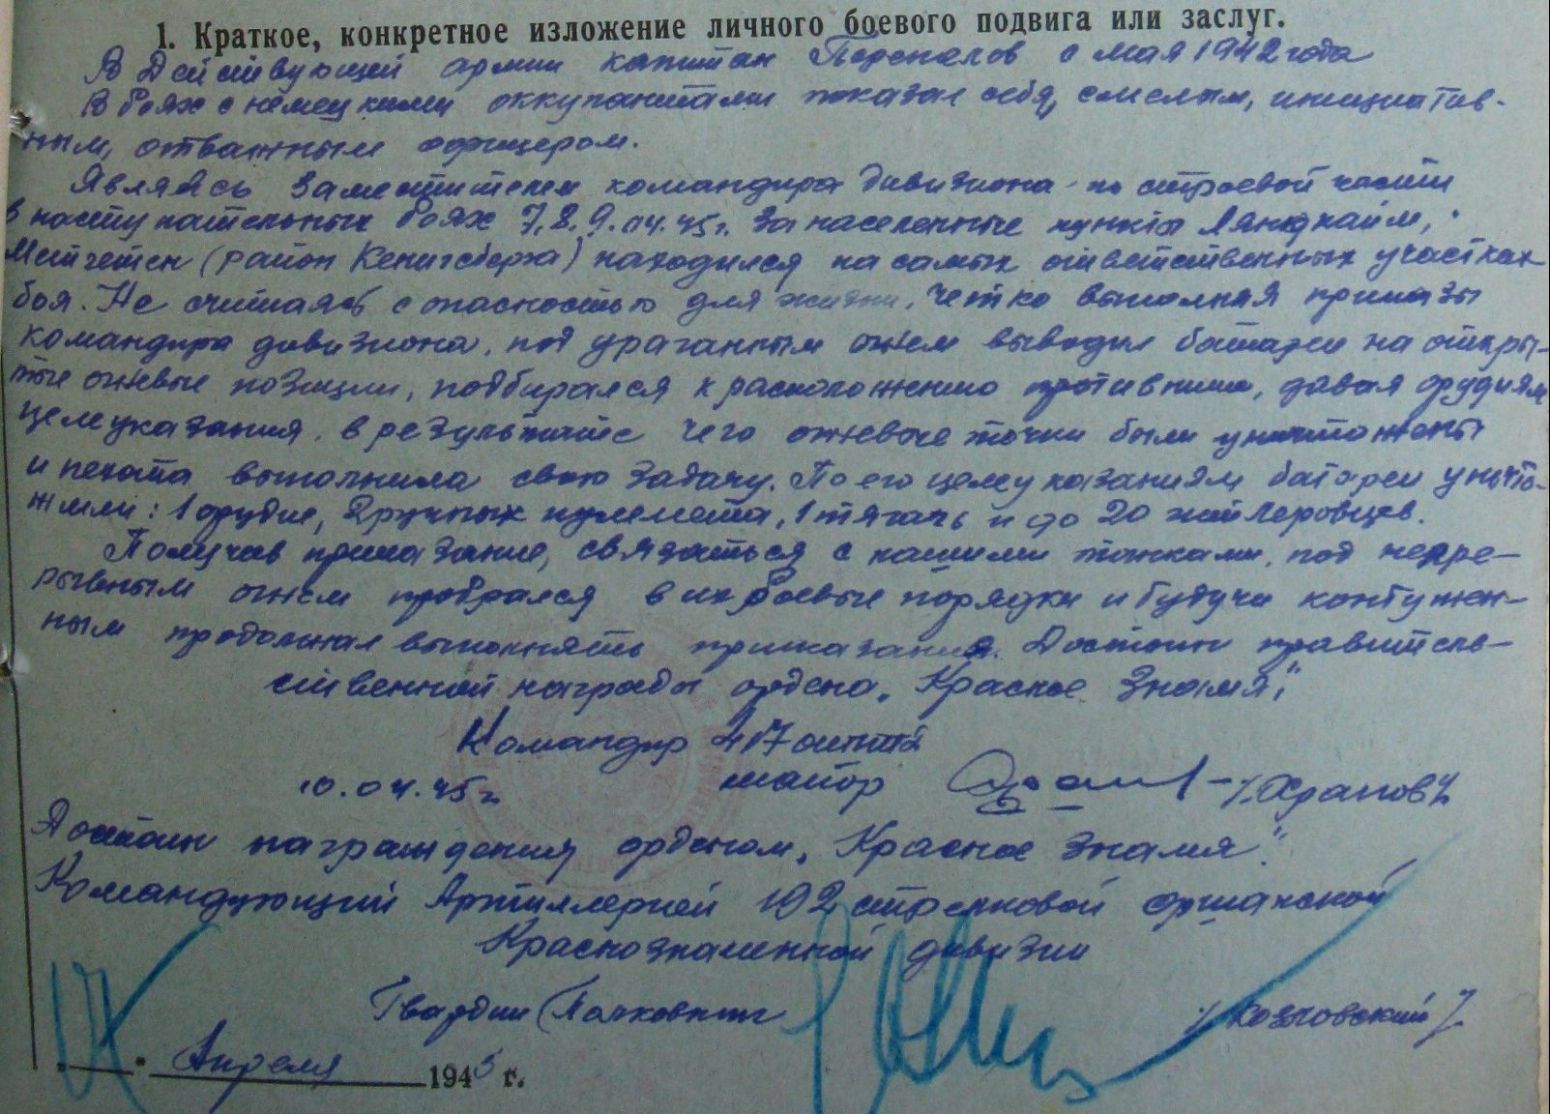 1. Краткое, конкретное изложение личного боевого подвига или заслуг.
В Действующей армии капитан Перепелов с мая 1942 года
В боях с немецкими оккупантами показал себя, смелым, инициатив-
ным, отважным офицером.
Являясь заместителем командира дивизиона по строевой части
в наступательных боях 7, 8, 9.04.45г. за населенные пункты
(район Кенигсберга) находился на самых ответственных участках
боя. Не считаясь с опасностью для жизни, четко выполняя приказы
командира дивизиона, под ураганным огнем выводил батареи на откры-
тые огневые позиции, подбирался к расположению противника, давая орудиям
целеуказания, в результате чего огневые точки были уничтожены
и пехота выполнила свою задачу. По его целеуказаниям батареи уничто-
жили: 1 орудие, 2 ручных пулемета, 1 тягачь и до 20 гитлеровцев.
Получив приказание, связаться с нашими танками, под непре-
рывным огнем пробрался в их боевые порядки и будучи контужен-
ным продолжал выполнять приказания. Достоин правитель-
ственной награды ордена „Красное Знамя".
Командир 417 оиптд
майор /Храпов/
10.04.45г
Достоин награждения орденом „Красное Знамя".
Командующий Артиллерией 192 стрелковой оршанской
Краснознаменной дивизии
Гвардии Полковник /Козловский/
„ " Апреля 1945 г.